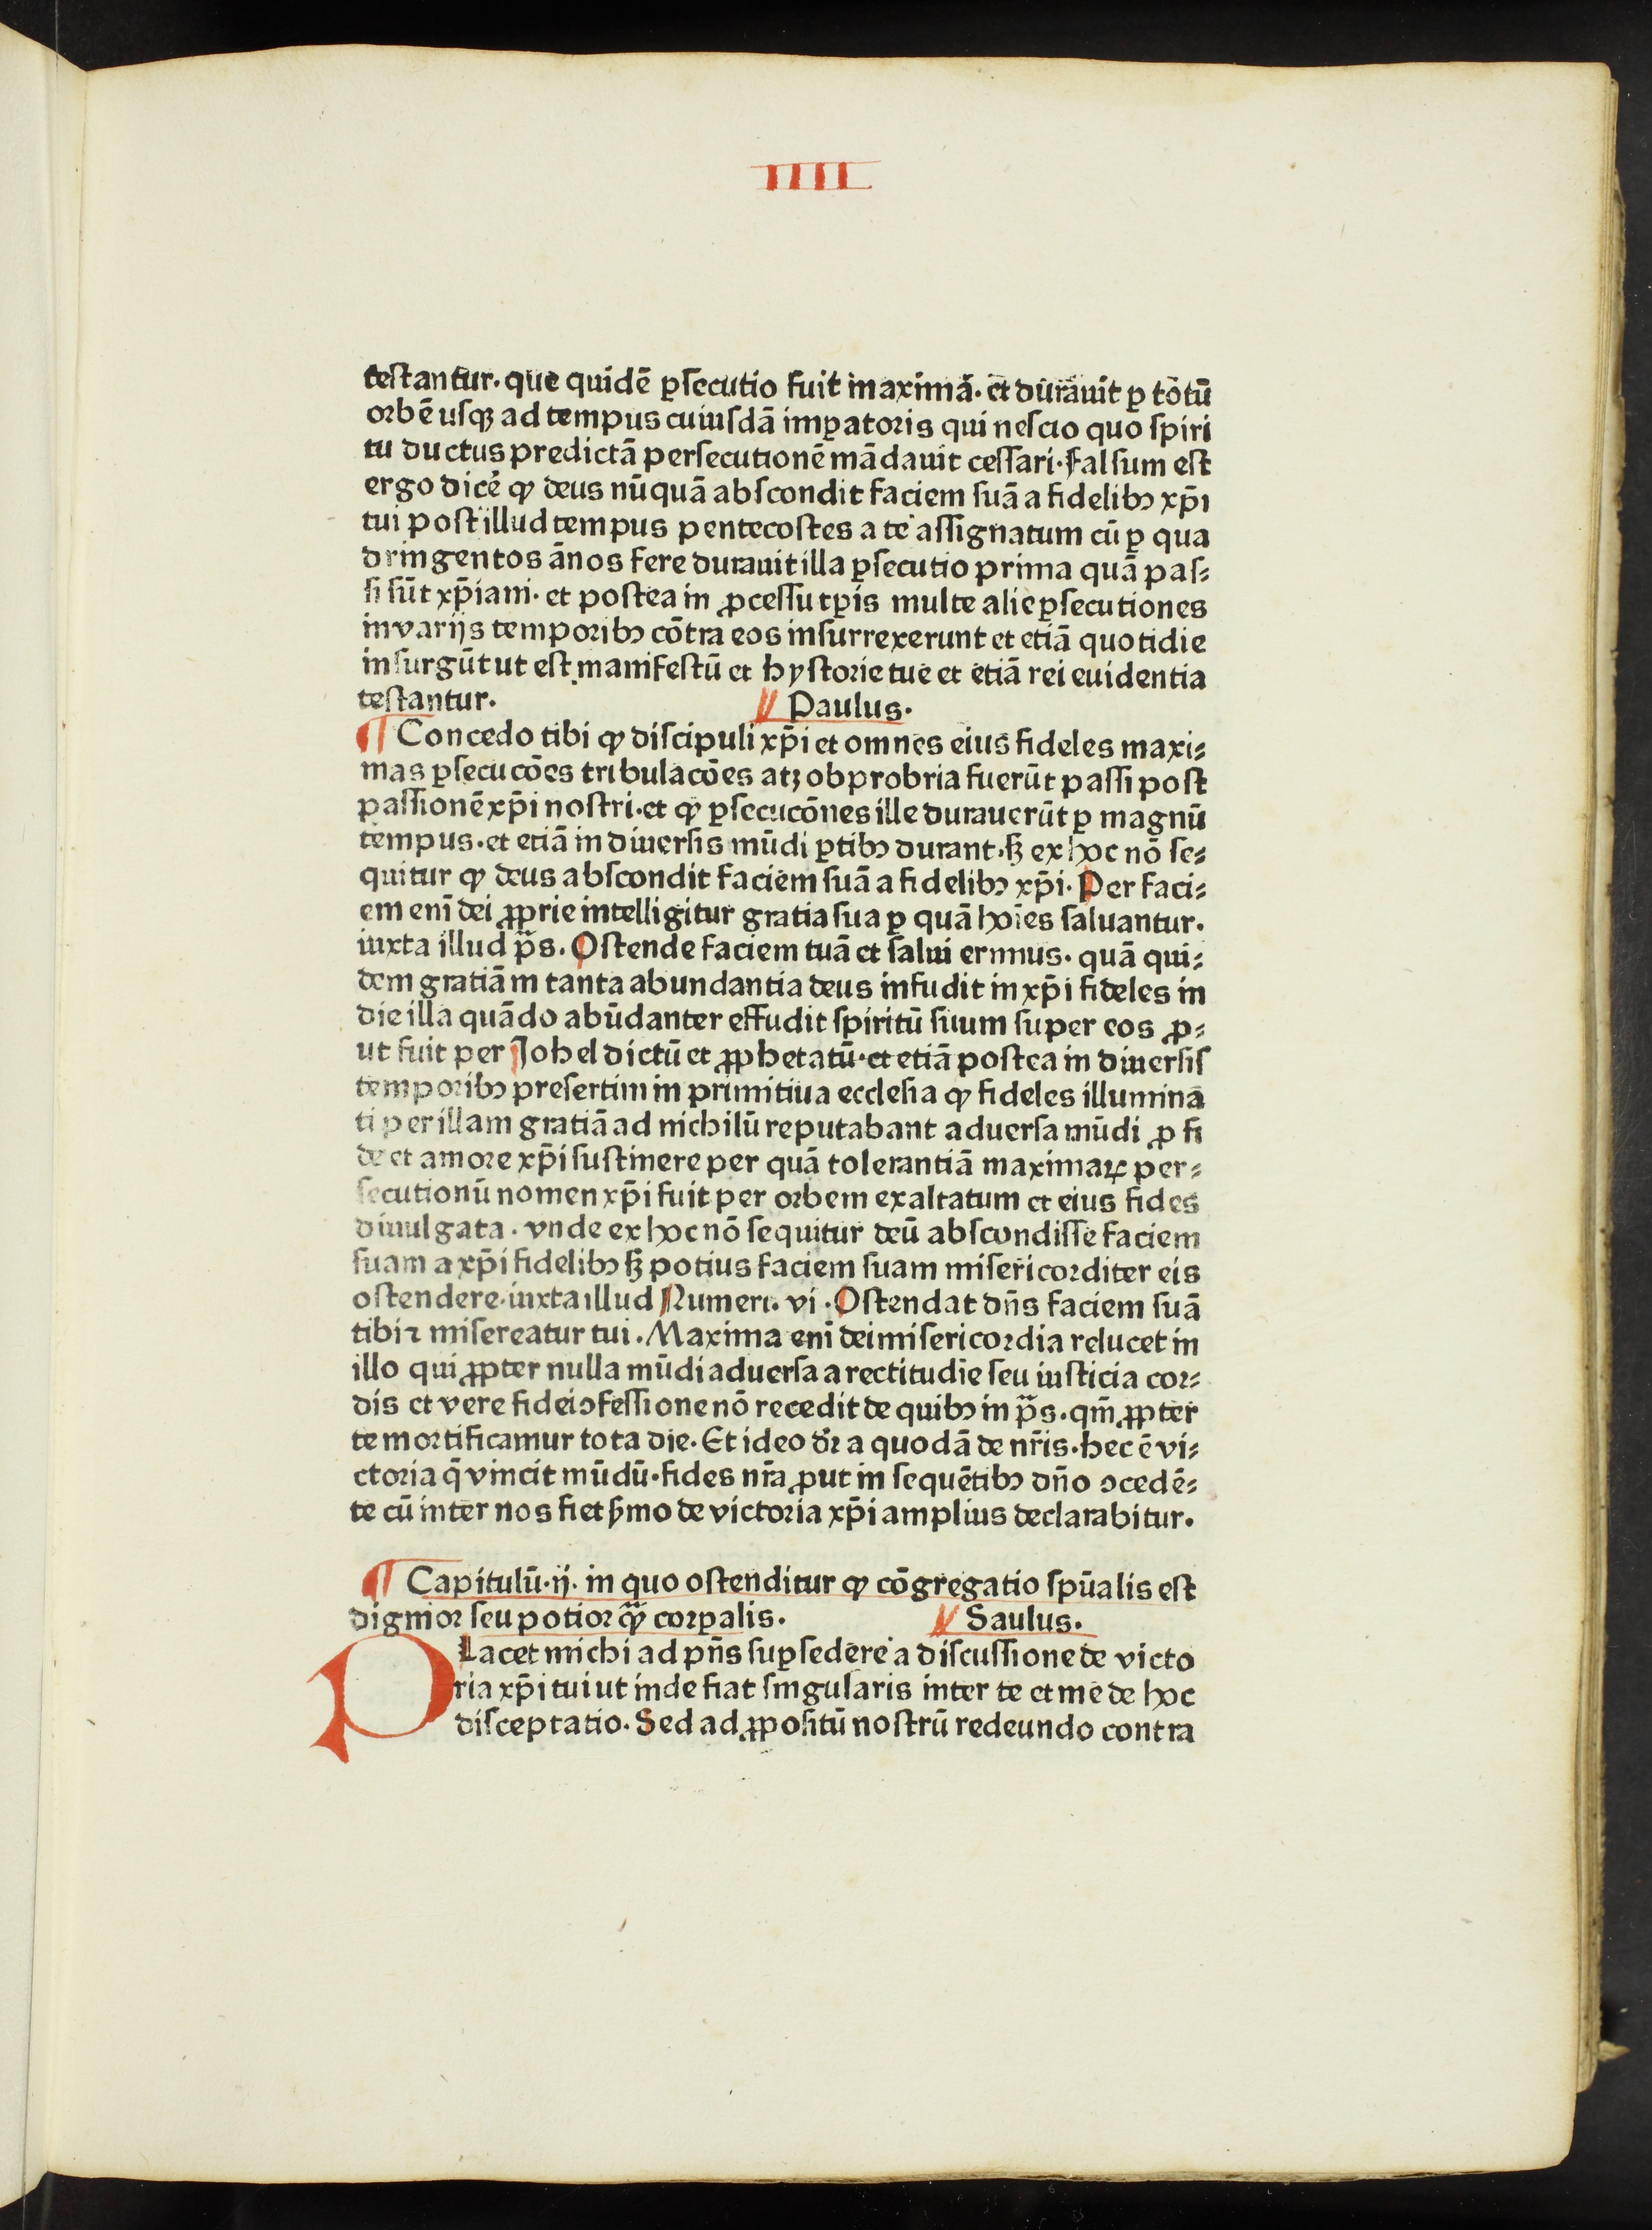 IIII
testantur. que quidē ꝑsecutio fuit maxima. et durauit ꝑ totū
orbē usqꝫ ad tempus cuiusdā imꝑatoris qui nescio quo spiri
tu ductus predictā persecutionē mādauit cessari. Falsum est
ergo dicē ꝙ deus nūquā abscondit faciem suā a fidelibꝰ xp̄i
tui post illud tempus pentecostes a te assignatum cū ꝑ qua
dringentos ānos fere durauit illa ꝑsecutio prima quā pas⸗
si sūt xp̄iani. et postea in ꝓcessu tꝑis multe alie ꝑsecutiones
in varijs temporibꝰ cōtra eos insurrexerunt et etiā quotidie
insurgūt ut est manifestū et hystorie tue et etiā rei euidentia
testantur. Paulus.
¶ Concedo tibi ꝙ discipuli xp̄i et omnes eius fideles maxi⸗
mas ꝑsecucōes tribulacōes atꝫ obprobria fuerūt passi post
passionē xp̄i nostri. et ꝙ ꝑsecucōnes ille durauerūt ꝑ magnū
tempus. et etiā in diuersis mūdi ꝑtibꝰ durant. sꝫ ex hoc nō se⸗
quitur ꝙ deus abscondit faciem suā a fidelibꝰ xp̄i. Per faci⸗
em eni̅ dei ꝓprie intelligitur gratia sua ꝑ quā hoi̅es saluantur.
iuxta illud p̄s. Ostende faciem tuā et salui erimus. quā qui⸗
dem gratiā in tanta abundantia deus infudit in xp̄i fideles in
die illa quādo abūdanter effudit spiritū suum super eos ꝓ⸗
ut fuit per Johel dictū et ꝓphetatū. et etiā postea in diuersis
temporibꝰ presertim in primitiua ecclesia ꝙ fideles illumina
ti per illam gratiā ad nichilū reputabant aduersa mūdi ꝓ fi
de et amore xp̄i sustinere per quā tolerantiā maximaꝝ per⸗
secutionū nomen xp̄i fuit per orbem exaltatum et eius fides
diuulgata. vnde ex hoc nō sequitur deū abscondisse faciem
suam a xp̄i fidelibꝰ sꝫ potius faciem suam misericorditer eis
ostendere. iuxta illud Numeri. vi. Ostendat dn̄s faciem suā
tibi ⁊ misereatur tui. Maxima eni̅ dei misericordia relucet in
illo qui ꝓpter nulla mūdi aduersa a rectitudi̅e seu iusticia cor⸗
dis et vere fidei ꝯfessione nō recedit de quibꝰ in p̄s. qm̄ ꝓpter
te mortificamur tota die. Et ideo dr̄ a quodā de nr̄is. hec ē vi⸗
ctoria q̄ vincit mūdū. fides nr̄a ꝓut in sequētibꝰ dn̄o ꝯcedē⸗
te cū inter nos fiet ẜmo de victoria xp̄i amplius declarabitur.
¶ Capitulū. ij. in quo ostenditur ꝙ cōgregatio spūalis est
dignior seu potior ꝙ̄ corꝑalis. Saulus.
PLacet michi ad pn̄s suꝑsedere a discussione de victo
ria xp̄i tui ut inde fiat singularis inter te et me de hoc
disceptatio. Sed ad ꝓpositū nostrū redeundo contra